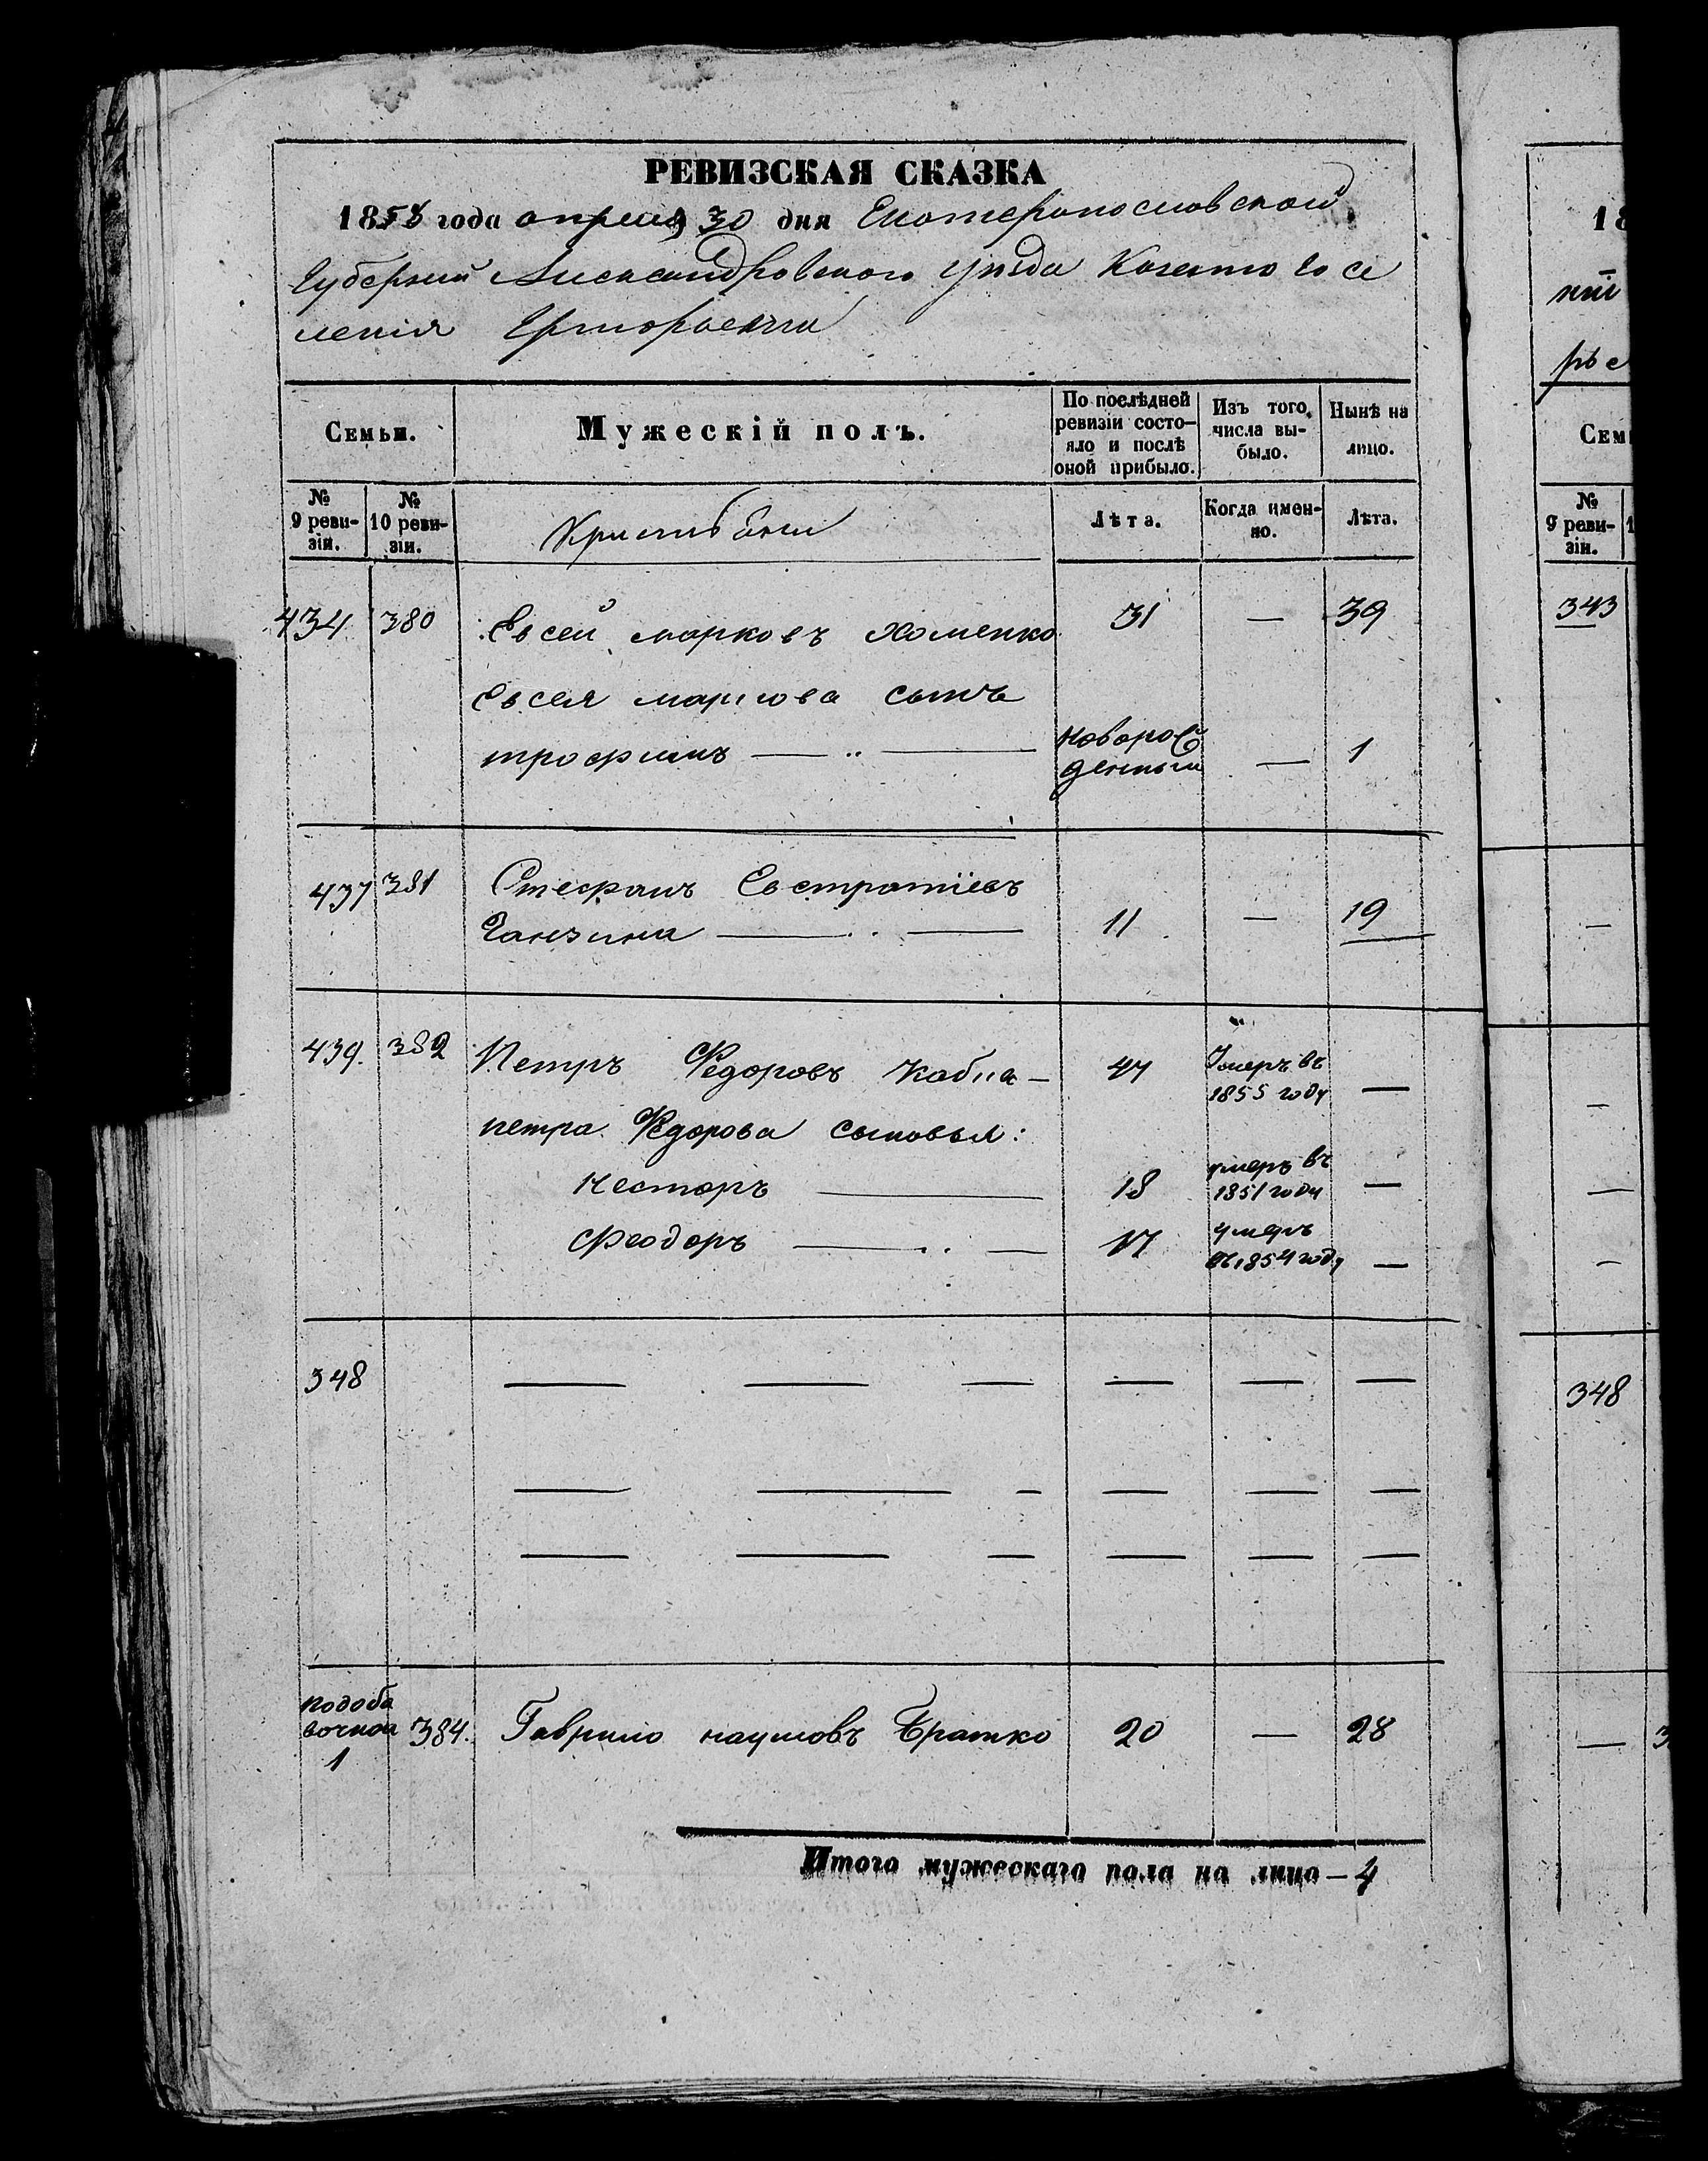 РЕВИЗСКАЯ СКАЗКА
1858 года апреля 30 дня Екатеринославской
Губерній Александровского уезда Казенно го се
ленія Григорьевки
Семьи.
Мужескій полъ.
По послѣдней ревизіи состо-яло и послѣ оной прибыло.
Изъ того числа вы-было.
Нынѣ на лицо.
№ 9 реви-зіи.
№ 10 реви-зіи.
Лѣта.
Когда имен-но.
Лѣта.
434 380 Евсей марковъ Хоменко 31 — 39
Евсея маркова сынъ
трофимъ — новорож денный — 1
437 381 Стефанъ Евстратіевъ
Ганзина — 11 — 19
439. 382 Петръ Федоровъ — 47 Умеръ въ 1855 году —
петра Федорова сыновья:
Несторъ — 18 умеръ въ 1851 году —
Феодоръ — 17 умеръ въ 1854 году —
348 — — — — — —
— — — — — —
— — — — — —
подоба вочная 1 384. Гаврило наумовъ Братко 20 — 28
Итого мужескаго пола на лицо — 4
18
ній
рье
Сем
№ 9 реви-зіи.
1
343
—
—
—
—
348
— 3